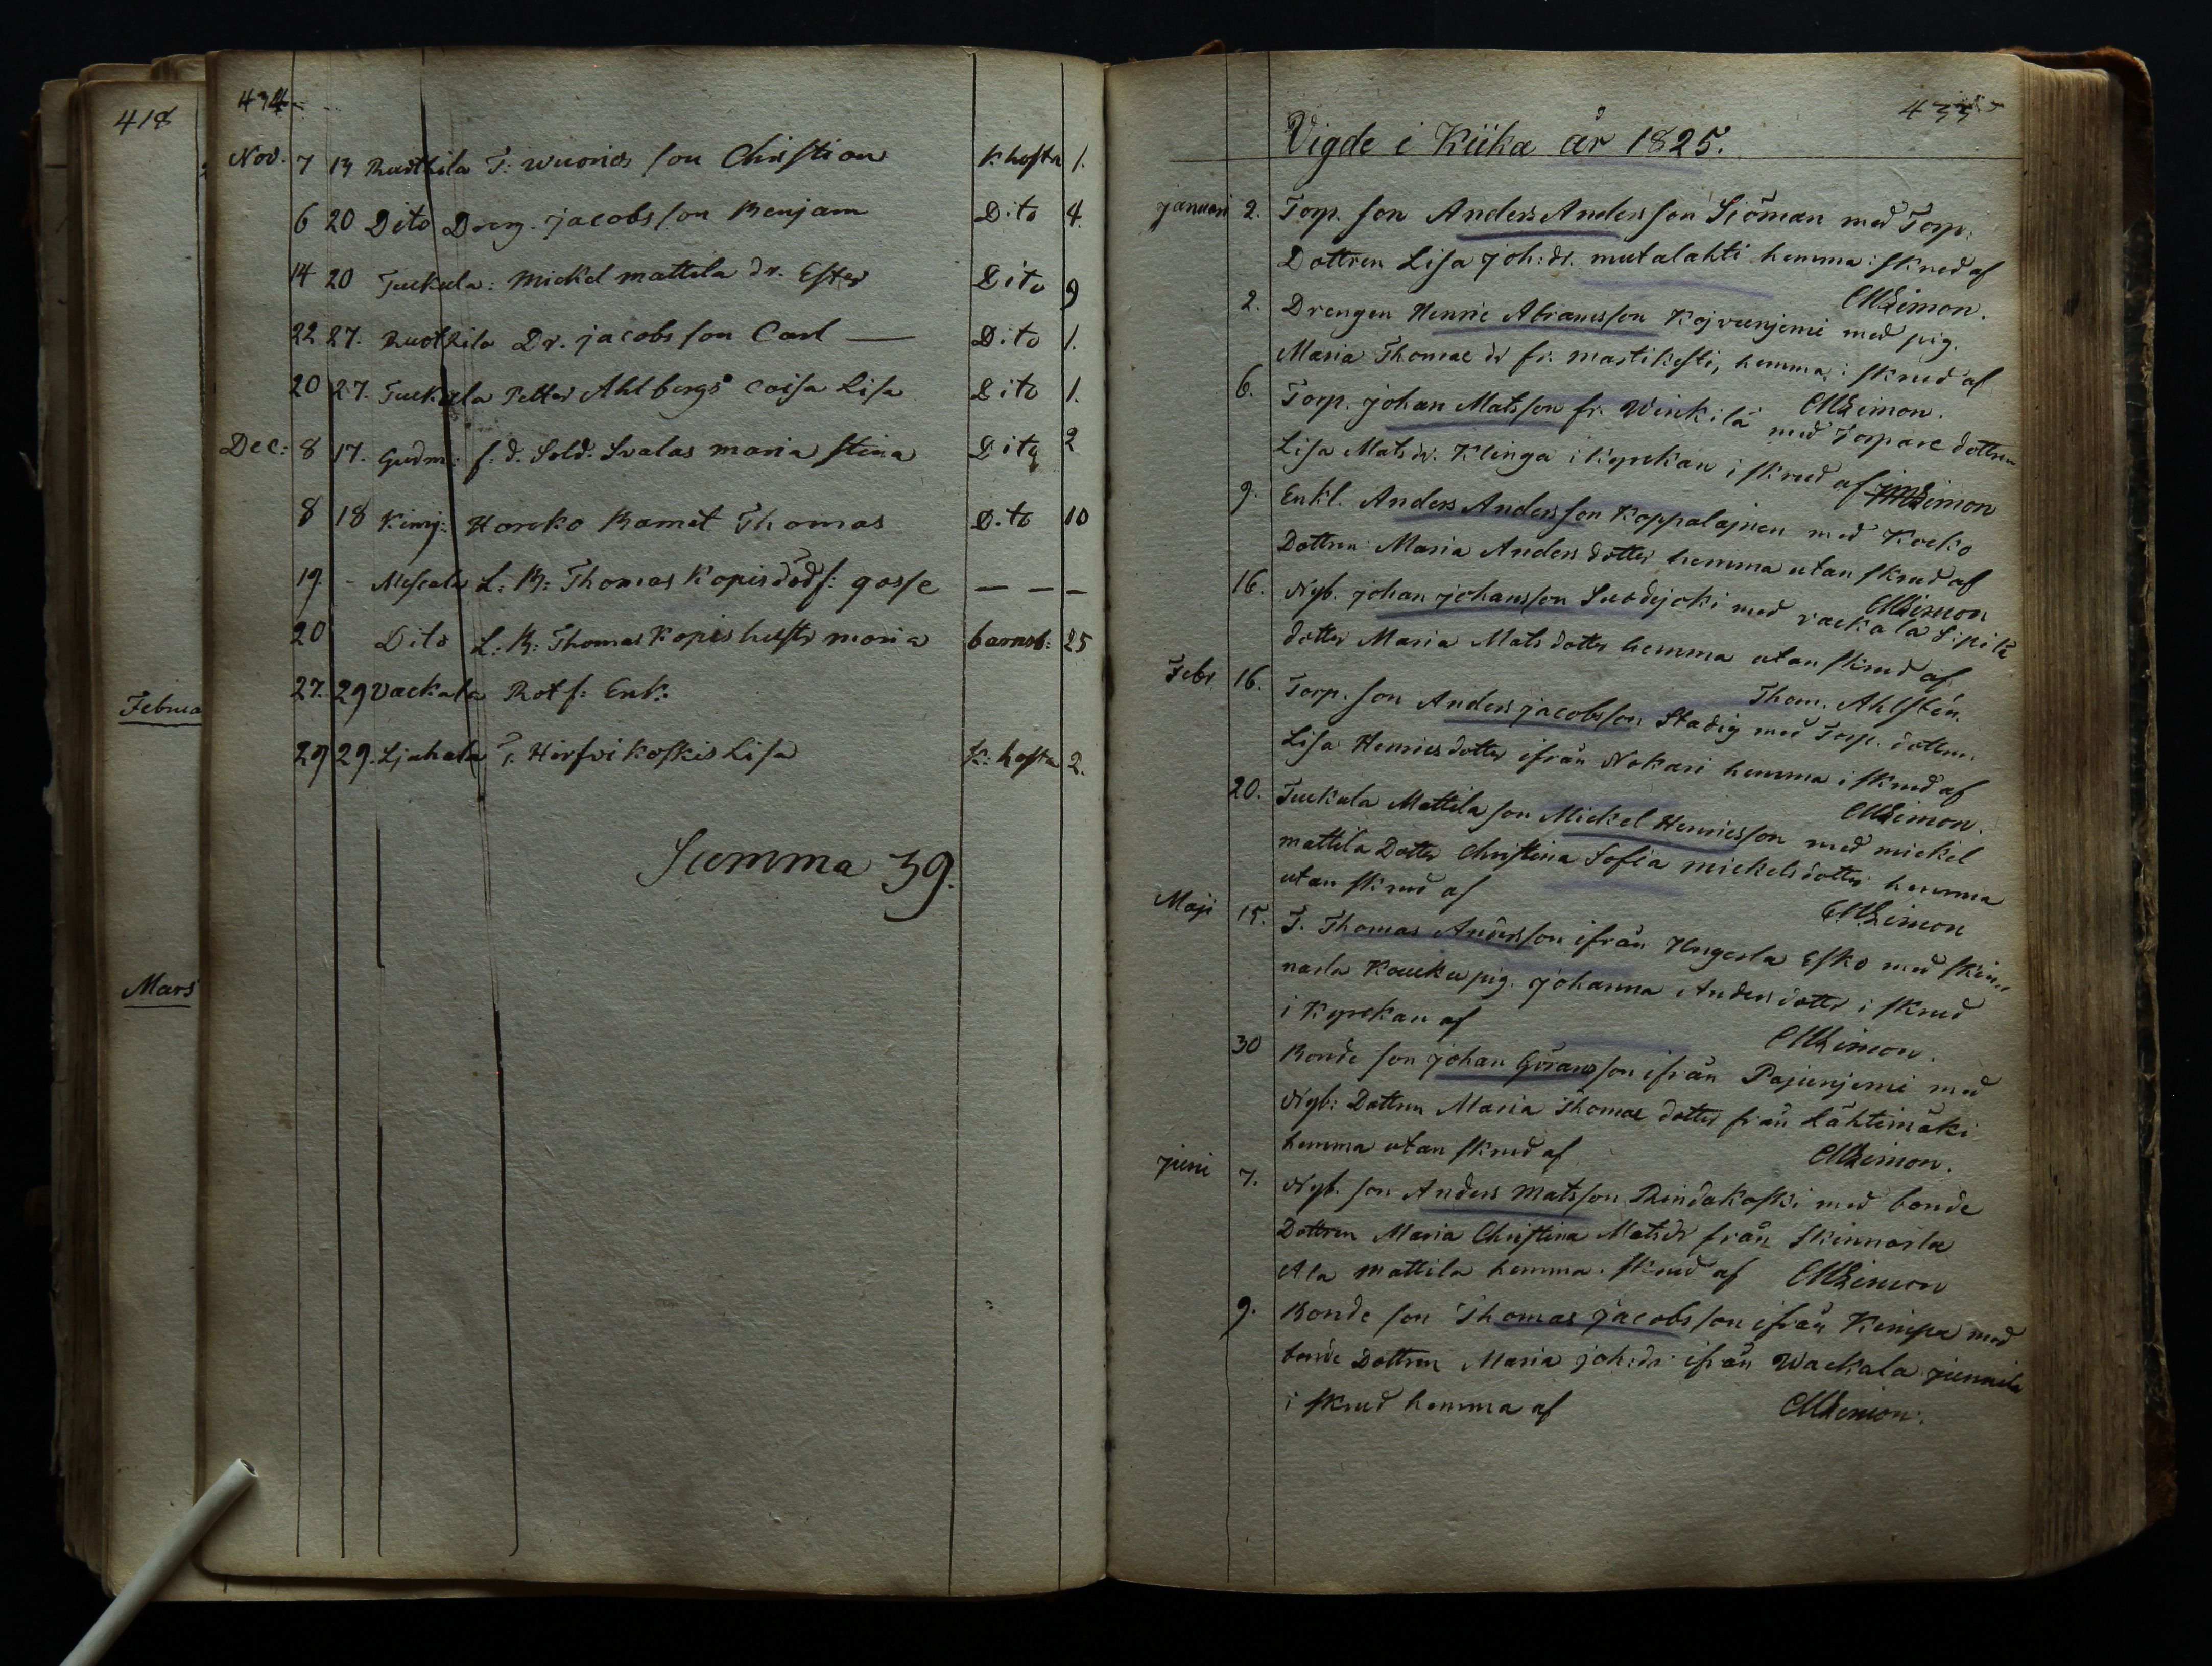 418
Februa
Mars
434
Nov. 7 13 Ruothila T: wuories son Christian K hosta 1.
6 20 Dito Dreng. jacobs son Benjam Dito 4.
14 20 Tuckula: Mickel mattila dr. Ester Dito 9
22 27. Ruothila Dr. jacobs son Carl — Dito 1.
20 27. Tuckula Petter Ahlbergs Lisa Dito 1.
Dec: 8 17. Gudm: f. d. Sold. Svalas maria stina Dito 2
8 18 Kimj: Horcko Barnet Thomas Dito 10
19. - L: B: Thomas Kopis dödf: gosse — — —
20 Dito L: B: Thomas Kopis hustr maria barnsb: 25
27. 29 Vackala Rot f: Enk:
29 29. Ljuhala T. Hirfvikoskis Lisa K: hosta 2.
Summa 39.
435
Vigde i Kiika år 1825.
januari 2. Torp. son Anders Andersson Sjöman med Torp.
Dottren Lisa joh: dr. mutalahti hemma i skrud af
CMLimon.
2. Drengen Henric Abramsson Kojvunjemi med pig.
Maria Thomae dr fr. mastikesti, hemma i skrud af
CMLimon.
6. Torp. johan Matsson fr. Winkilä med Torpare dottren
Lisa Mats dr. Klinga i kyrckan i skrud af CMLimon
9. Enkl. Anders Andersson Koppalajnen med Kocko
Dottren Maria Anders dotter hemma utan skrud af
CMLimon
16. Nyb. johan johansson Suodejoki med vackala Sipilä
dotter Maria Mats dotter hemma utan skrud af
Thom. Ahlstén.
Febr. 16. Torp. son Anders jacobsson Stadig med Torp. dottren.
Lisa Henrics dotter ifrån Nokari hemma i skrud af
CMLimon.
20. Tuckula Mattila son Mickel Henricsson med mickel
mattila Dotter Christina Sofia mickels dotter hemma
utan skrud af
CMLimon
Maji 15. T. Thomas Andersson ifrån Ungerla Esko med skin-
narla Koucku pig. johanna Anders dotter i skrud
i Kyrckan af
CMLimon.
30 Bonde son johan Göransson ifrån Pajunjemi med
Nyb: Dottren Maria Thomae dotter från Lähtimäki
hemma utan skrud af
CMLimon.
juni 7. Nyb. son Anders Matsson Rindakoski med bonde
Dottren Maria Christina Mats dr från Skinnarla
Ala mattila hemma i skrud af CMLimon
9. Bonde son Thomas jacobsson ifrån Kimpa med
bonde Dottren Maria joh: dr. ifrån Wackala junnila
i skrud hemma af CMLimon.